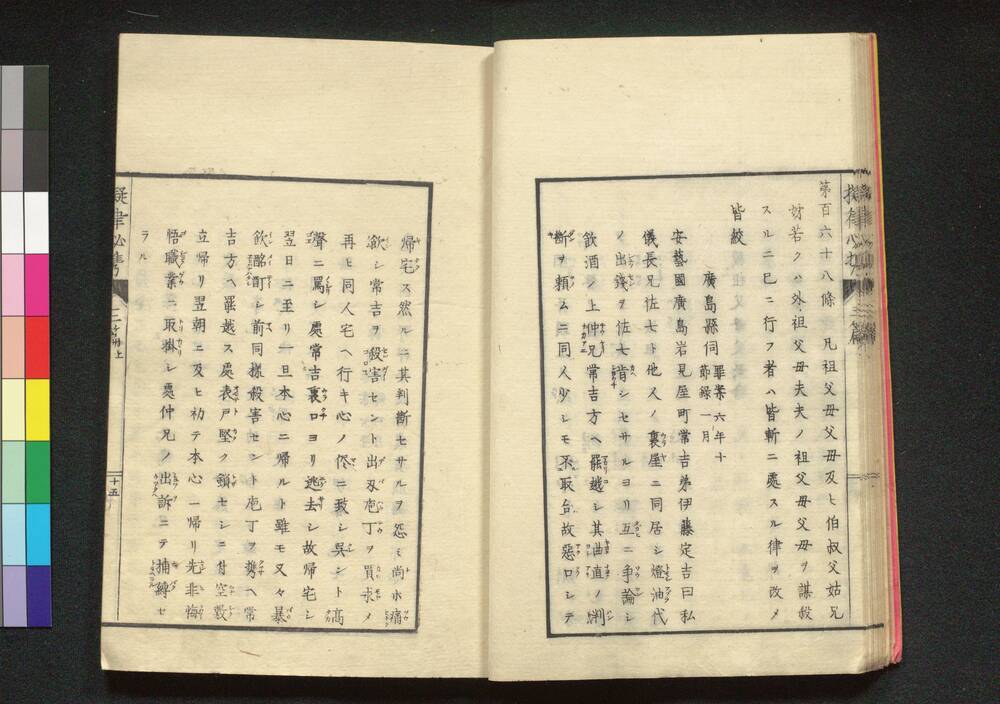 第百六十八條 凡祖父母父母及ヒ伯叔父姑兄
姉若クハ外祖父母夫夫ノ祖父母父母ヲ謀殺
スルニ已ニ行フ者ハ皆斬ニ處スル律ヲ改メ
皆絞
廣島縣伺 罪案 六年十
節録 一月
安藝國廣島岩見屋町常吉弟伊藤定吉曰私
儀長兄佐七ト他人ノ裏屋ニ同居シ燈油代
ノ出錢ヲ佐七肯シセサルヨリ互ニ争論シ
飲酒ノ上仲兄常吉方ヘ罷越シ其曲直ノ判
断ヲ頼ムニ同人少シモ不取合故惡口シテ
帰宅ス然ルニ其判断セサルヲ怨ミ尚ホ痛
飲シ常吉ヲ殺害セント出刃庖丁ヲ買求メ
再ヒ同人宅ヘ行キ心ノ侭ニ致シ呉ント高
聲ニ罵シ處常吉裏口ヨリ逃去シ故帰宅シ
翌日ニ至リ一旦本心ニ帰ルト雖モ又々暴
飲酩酊シ前同樣殺害セント庖丁ヲ携ヘ常
吉方ヘ罷越ス處表戸堅ク鎖セシニ付空敷
立帰リ翌朝ニ及ヒ初テ本心ニ帰リ先非悔
悟職業ニ取掛シ處仲兄ノ出訴ニテ捕縛セ
ラル
擬律必携
二篇上
十五